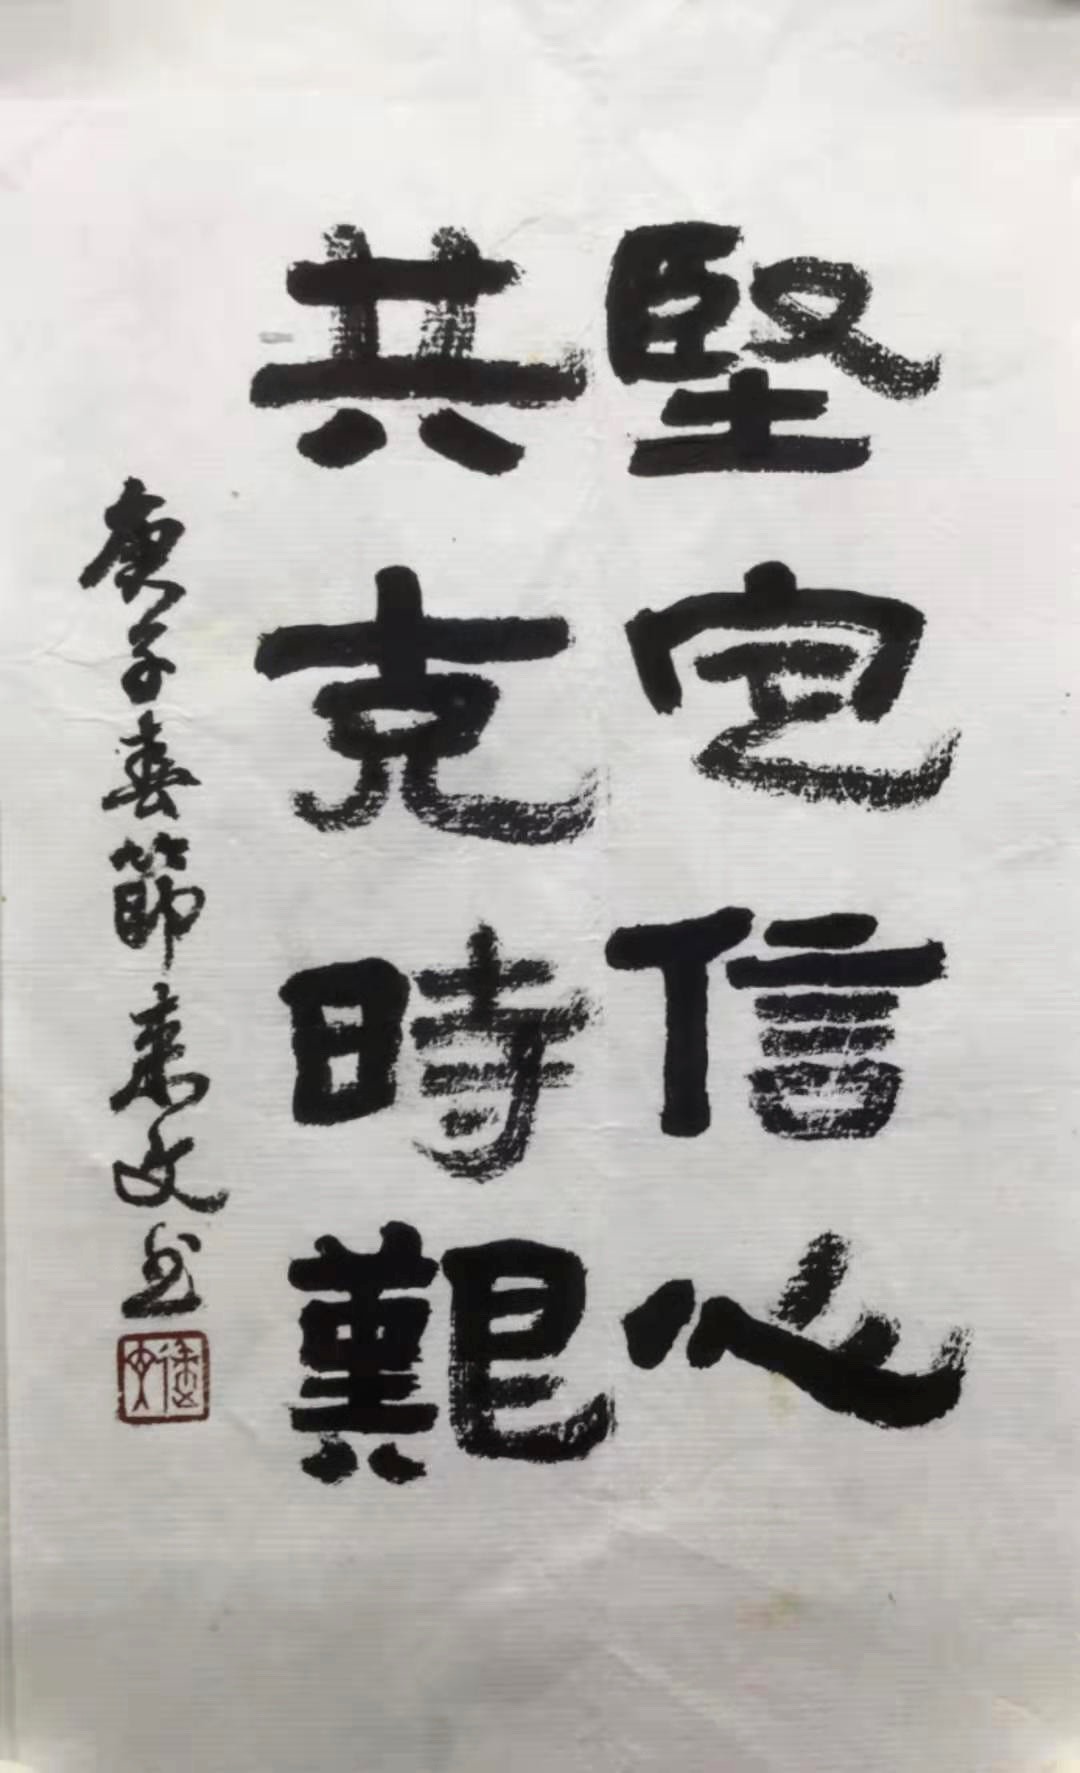 堅定信心
共克時艱
庚子春節來文书